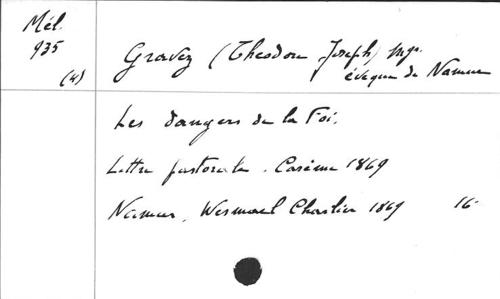 Mél.
935
(4)
Gravez (Theodore Joseph) Mgr.
évêque de Namur
Les dangers de la Foi.
Lettre pastorale. Carême 1869
Namur, Wesmael Charlier 1869 16-